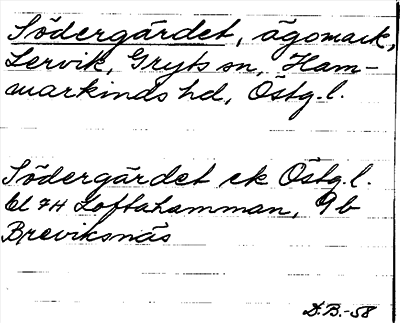 Södergärdet, ägomark,
Lervik, Gryts sn, Ham-
markinds hd, Östg. l.
Södergärdet ek Östg. l.
bl 7H Loftahamman, 9b
Breviksnäs
D.B.-58